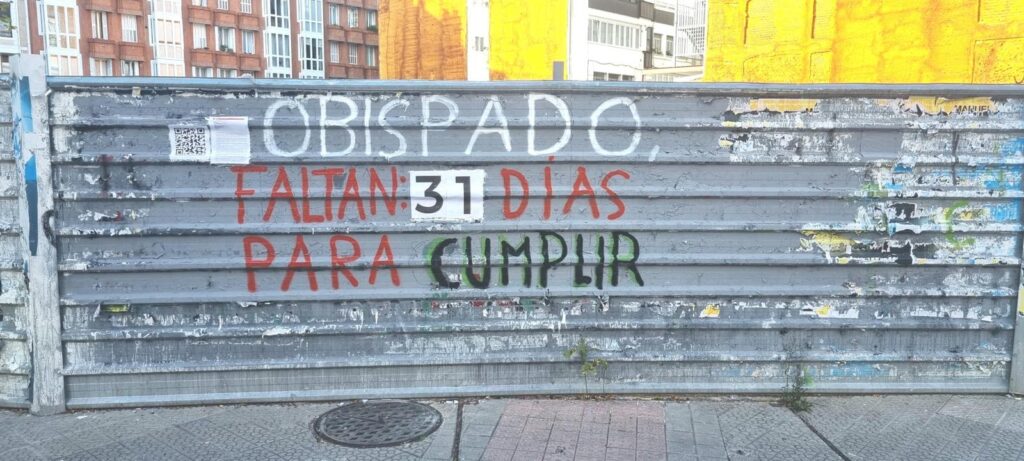 OBISPADO,
FALTAN: 31 DÍAS
PARA CUMPLIR
MANUEL